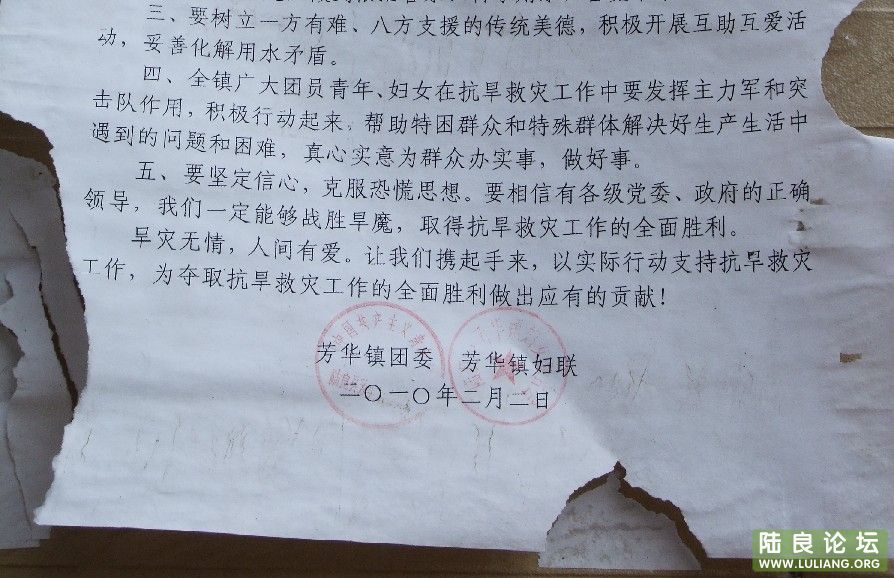 三、要树立一方有难、八方支援的传统美德，积极开展互助互爱活
动，妥善化解用水矛盾。
四、全镇广大团员青年、妇女在抗旱救灾工作中要发挥主力军和突
击队作用，积极行动起来，帮助特困群众和特殊群体解决好生产生活中
遇到的问题和困难，真心实意为群众办实事，做好事。
五、要坚定信心，克服恐慌思想。要相信有各级党委、政府的正确
领导，我们一定能够战胜旱魔，取得抗旱救灾工作的全面胜利。
旱灾无情，人间有爱。让我们携起手来，以实际行动支持抗旱救灾
工作，为夺取抗旱救灾工作的全面胜利做出应有的贡献！
芳华镇团委 芳华镇妇联
二〇一〇年二月二日
陆良论坛
WWW.LULIANG.ORG